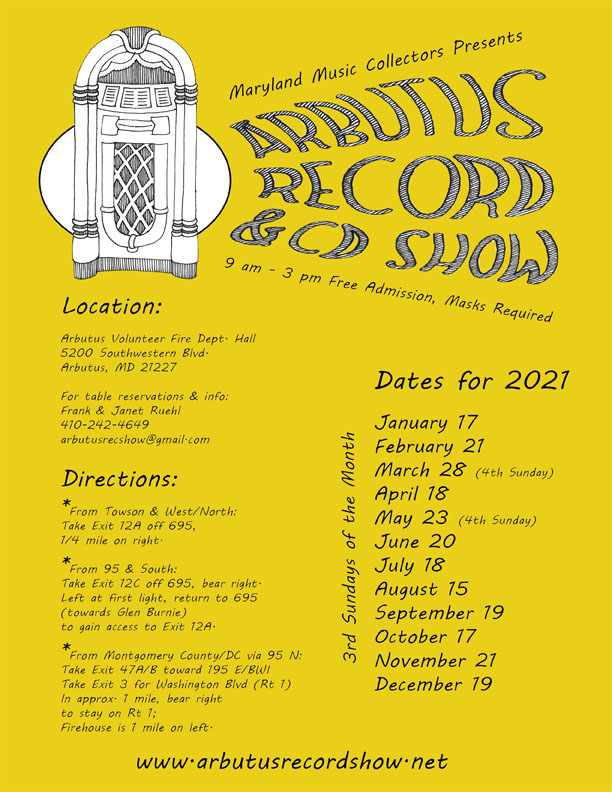 Maryland Music Collectors Presents
ARBUTUS
RECORD
& CD SHOW
9 am - 3 pm Free Admission, Masks Required
Location:
Arbutus Volunteer Fire Dept. Hall
5200 Southwestern Blvd.
Arbutus, MD 21227
For table reservations & info:
Frank & Janet Ruehl
410-242-4649
arbutusrecshow@gmail.com
Directions:
*From Towson & West/North:
Take Exit 12A off 695,
1/4 mile on right.
*From 95 & South:
Take Exit 12C off 695, bear right.
Left at first light, return to 695
(towards Glen Burnie)
to gain access to Exit 12A.
*From Montgomery County/DC via 95 N:
Take Exit 47A/B toward 195 E/BWI
Take Exit 3 for Washington Blvd (Rt 1)
In approx. 1 mile, bear right
to stay on Rt 1;
Firehouse is 1 mile on left.
Dates for 2021
3rd Sundays of the Month
January 17
February 21
March 28 (4th Sunday)
April 18
May 23 (4th Sunday)
June 20
July 18
August 15
September 19
October 17
November 21
December 19
www.arbutusrecordshow.net